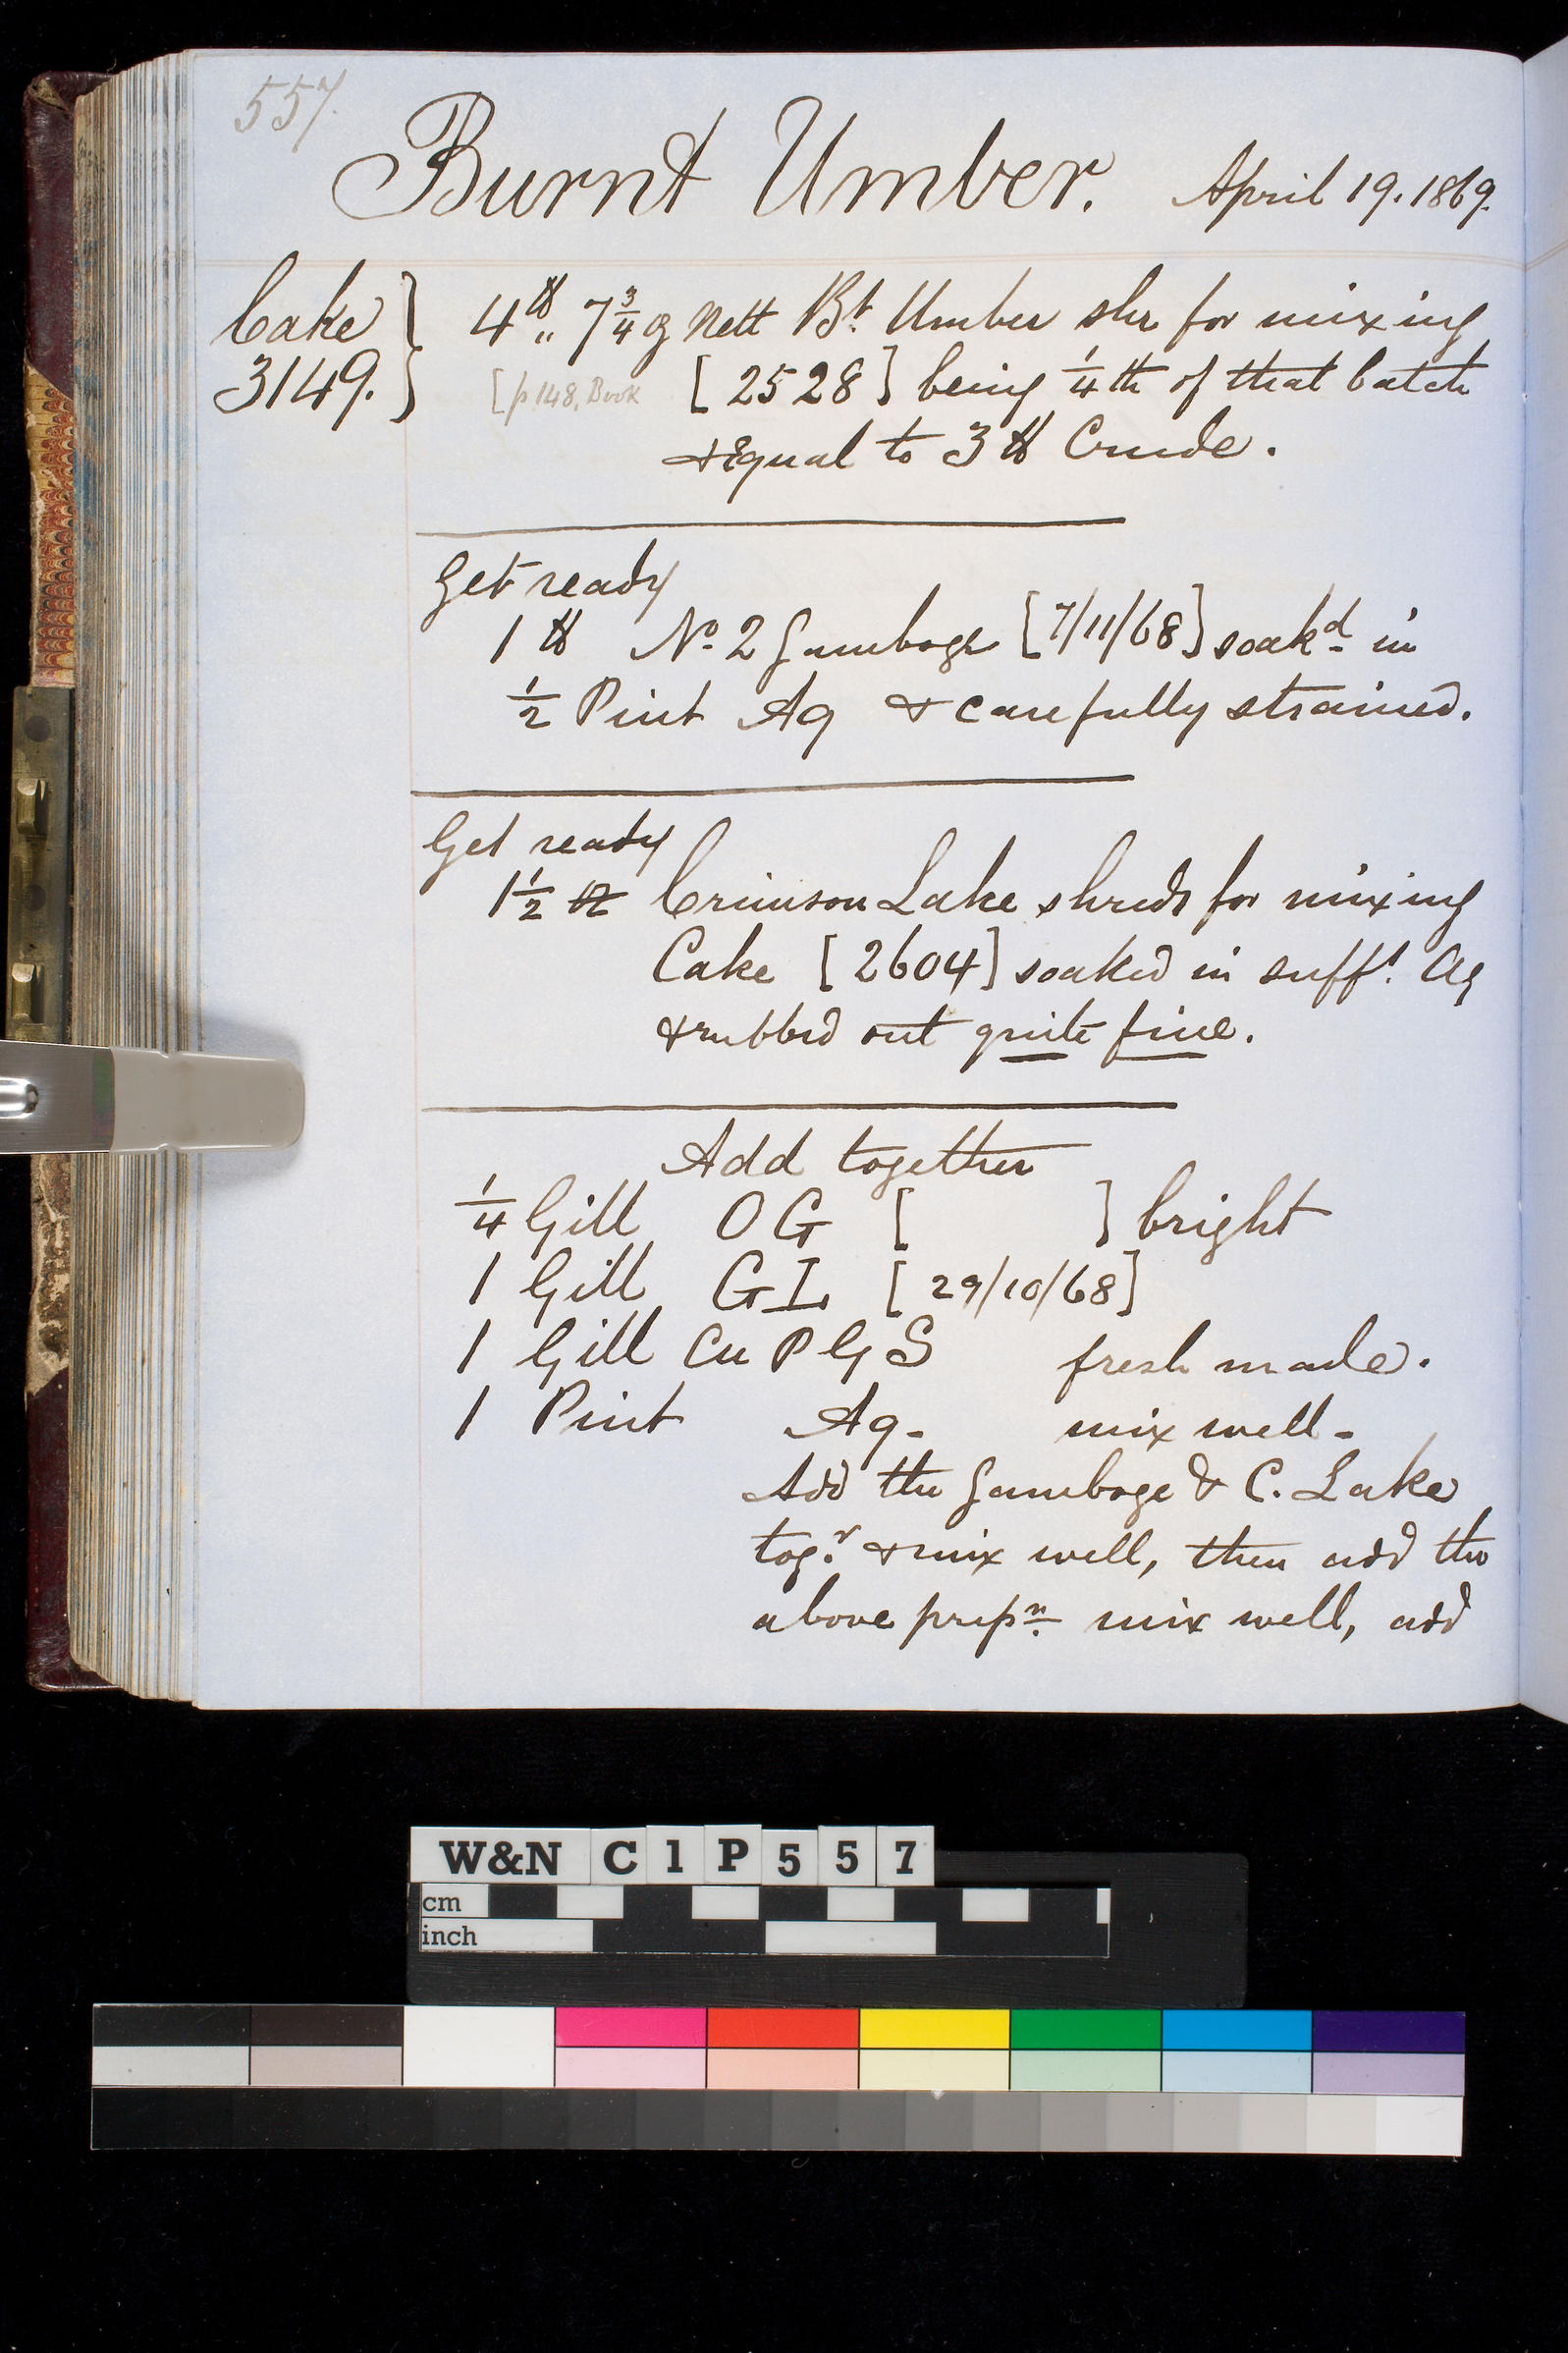 557.
Burnt Umber. April 19. 1869.
Cake } 4 ℔ „ 7 3/4 oz Nett Bt. Umber shr for mixing
3149. } [p. 148, Book [2528] being 1/4th of that batch
& Equal to 3 ℔ Crude.
Get ready
1 ℔ No. 2 Gamboge [7/11/68] soakd in
1/2 Pint Aq & carefully strained.
Get ready
1 1/2 Crimson Lake shreds for mixing
Cake [2604] soaked in sufft. Aq
& rubbed out quite fine.
Add together
1/4 Gill OG [ ] bright
1 Gill GL [29/10/68]
1 Gill Cu P G S fresh made.
1 Pint Aq- mix well-
Add the Gamboge & C. Lake
togr. & mix well, then add the
above prepn. mix well, add
W&N C1P557
cm
inch